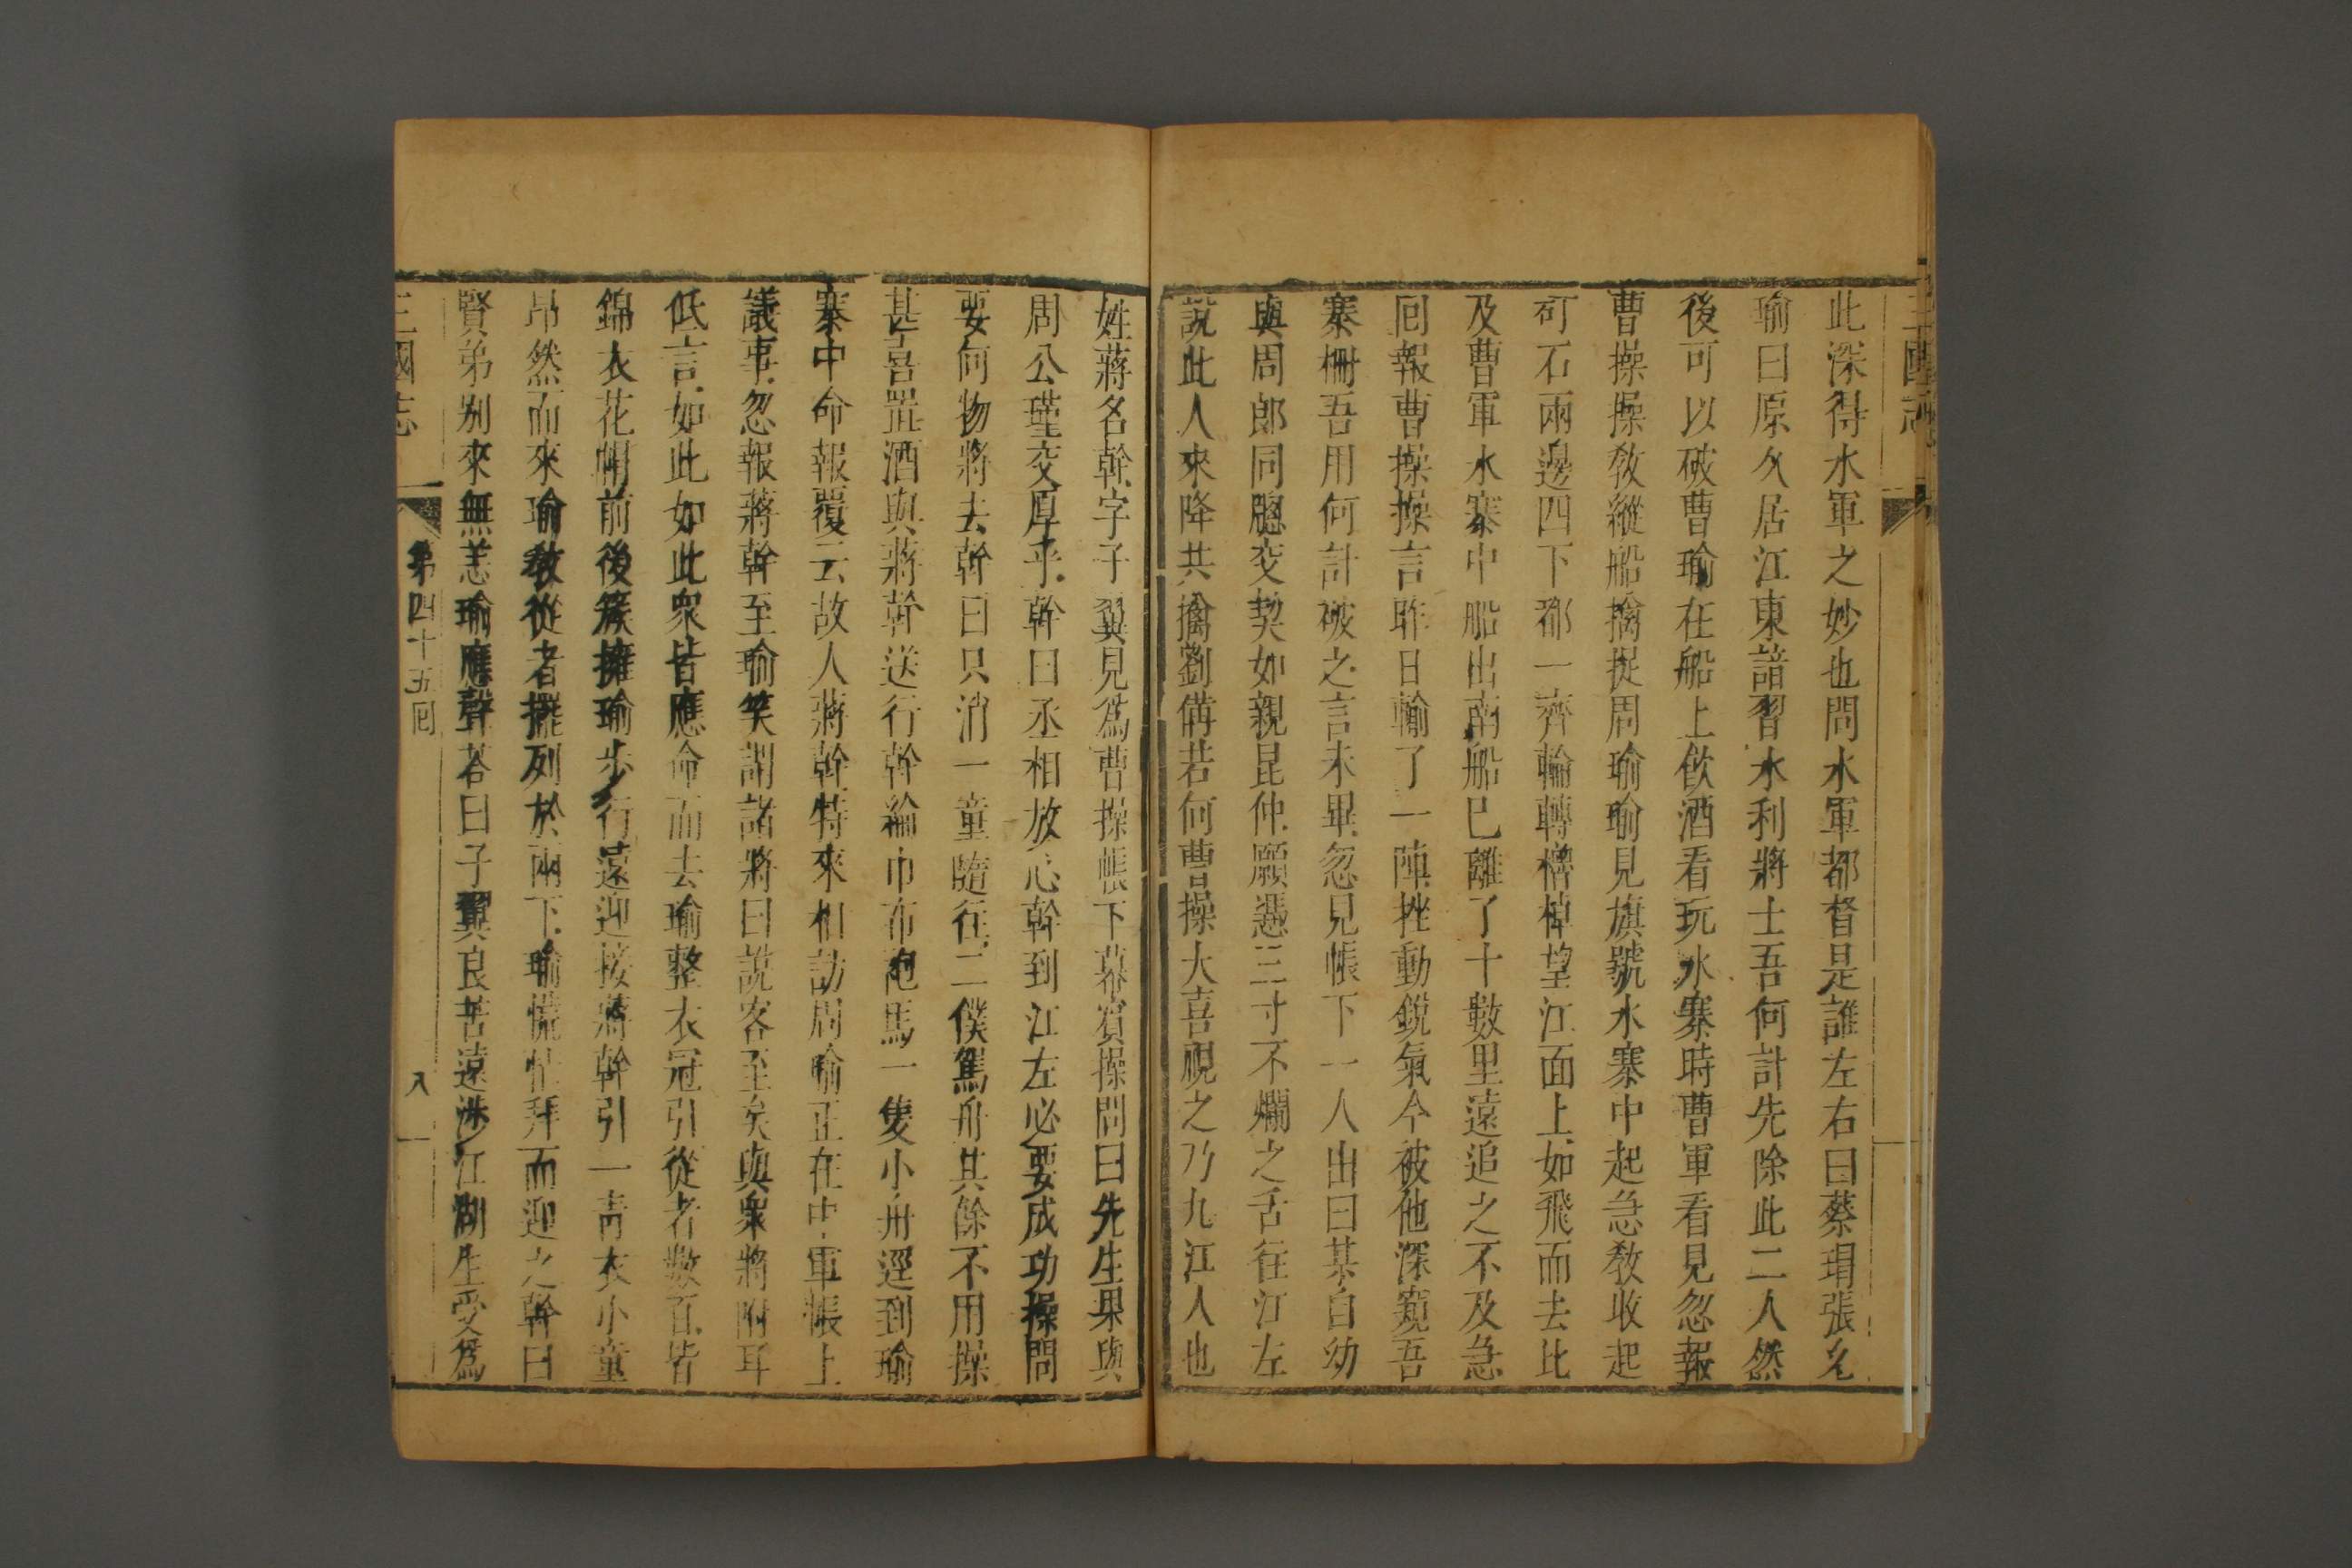 三國志
此深得水軍之妙也問水軍都督是誰左右曰蔡瑁張允
瑜曰原久居江東諳習水利將士吾何計先除此二人然
後可以破曹瑜在船上飲酒看玩水寨時曹軍看見忽報
曹操操教縱船擒捉周瑜瑜見旗號水寨中起急教收起
矴石兩邊四下都一齊輪轉櫓棹望江面上如飛而去比
及曹軍水寨中船出南船已離了十數里遠追之不及急
囘報曹操操言昨日輸了一陣挫動銳氣今被他深窺吾
寨柵吾用何計破之言未畢忽見帳下一人出曰某自幼
與周郎同牕交契如親昆仲願憑三寸不爛之舌往江左
說此人來降共擒劉備若何曹操大喜視之乃九江人也
姓蔣名幹字子翼見爲曹操帳下幕賓操問曰先生果與
周公瑾交厚乎幹曰丞相放心幹到江左必要成功操問
要何物將去幹曰只消一童隨往二僕駕舟其餘不用操
甚喜置酒與蔣幹送行幹綸巾布袍馬一隻小舟逕到瑜
寨中命報覆云故人蔣幹特來相訪周瑜正在中軍帳上
議事忽報蔣幹至瑜笑謂諸將曰說客至矣與衆將附耳
低言如此如此衆皆應命而去瑜整衣冠引從者數百皆
錦衣花帽前後簇擁瑜步行遠迎接蔣幹引一青衣小童
昂然而來瑜敎從者擺列於兩下瑜慌忙拜而迎之幹曰
賢弟别來無恙瑜應聲荅曰子翼良苦遠涉江湖生受爲
三國志 第四十五囘 八